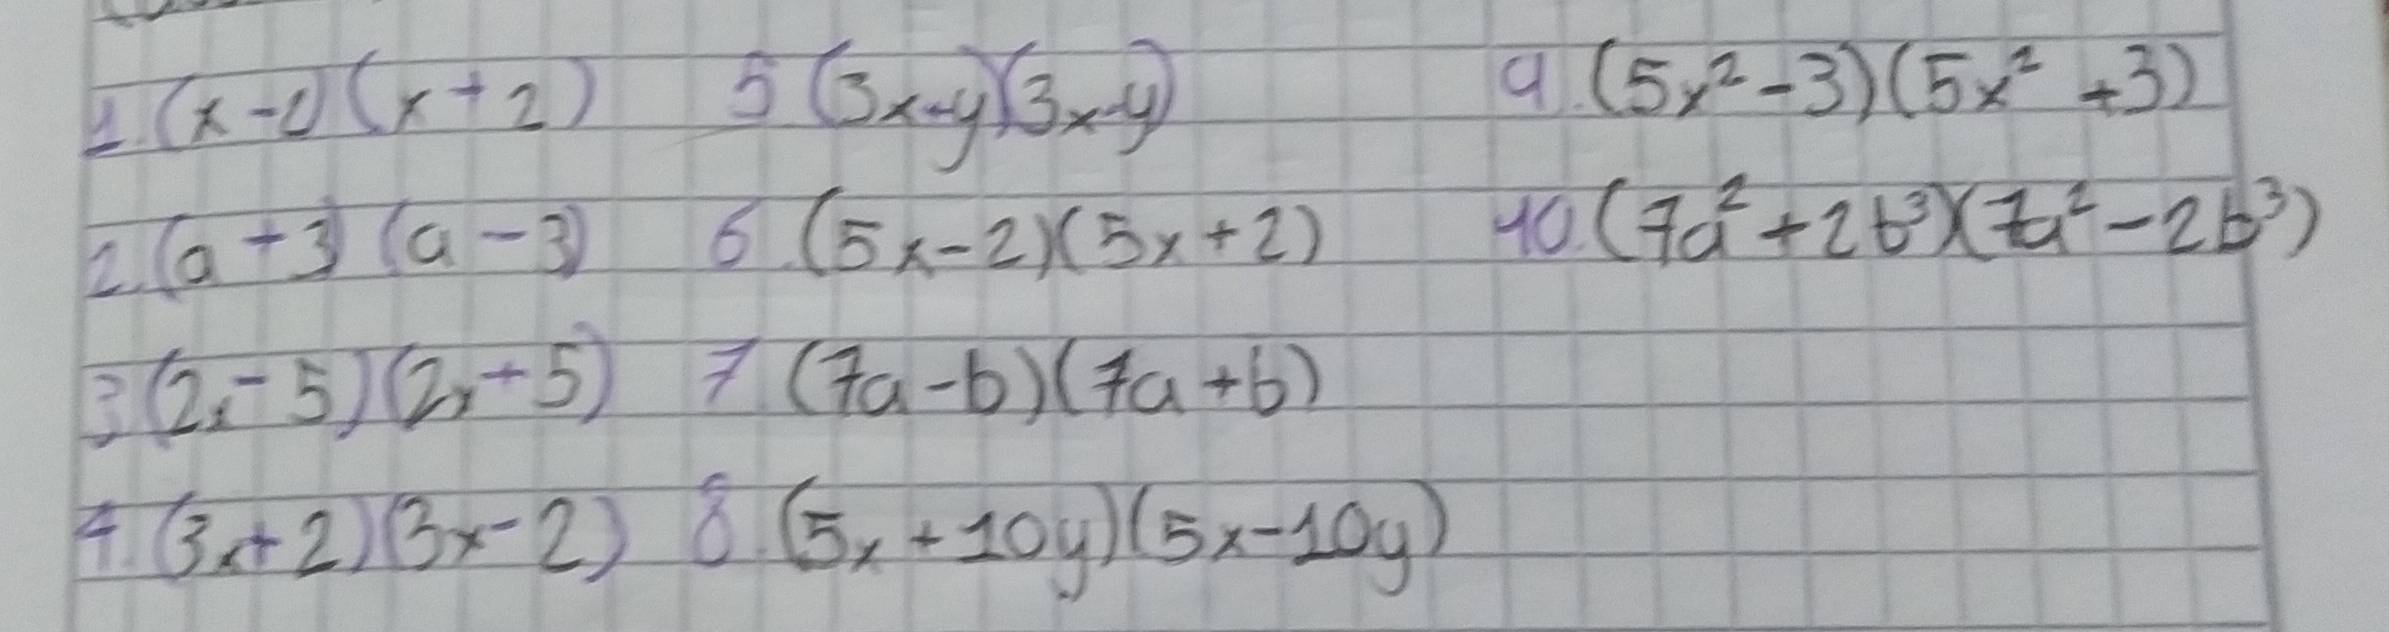 1. (x-2)(x+2)
2. (a+3)(a-3)
3. (2x-5)(2x+5)
4. (3x+2)(3x-2)
5 (3x+y)(3x-y)
6. (5x-2)(5x+2)
7 (7a-b)(7a+b)
8. (5x+10y)(5x-10y)
9. (5x²-3)(5x²+3)
10. (7a²+2b³)(7a²-2b³)